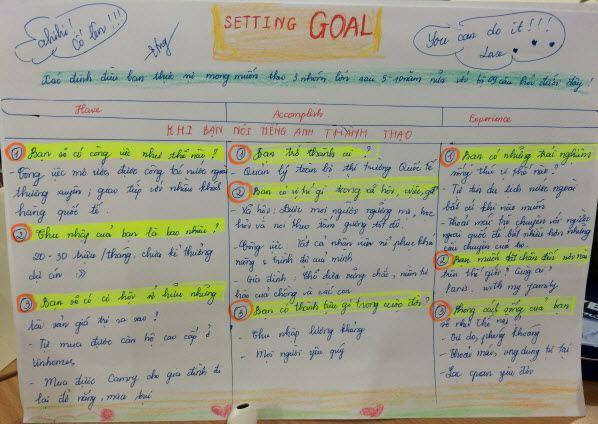 ahihi!
cố lên!!!
SETTING GOAL
You can do it!!!
Love
Xác định điều bạn thực sự mong muốn theo 3 nhóm lớn sau 5-10 năm nữa với bộ 09 câu hỏi dưới đây!
Have
Accomplish
Experience
KHI BẠN NÓI TIẾNG ANH THÀNH THẠO
① Bạn sẽ có công việc như thế nào?
- Công việc mơ ước, được công tác nước ngoài
thường xuyên, giao tiếp với nhiều khách
hàng quốc tế.
② Thu nhập của bạn là bao nhiêu?
20 - 30 triệu/tháng, chưa kể thưởng
dự án :))
③ Bạn sẽ có cơ hội sở hữu những
tài sản giá trị ra sao?
- Tự mua được căn hộ cao cấp ở
Vinhomes
- Mua được Camry cho gia đình đi
lại đỡ nắng, mưa, bụi
① Bạn trở thành ai?
- Quản lý toàn bộ thị trường Quốc tế
② Bạn có vị trí gì trong xã hội, việc, gđ?
- Xã hội: Được mọi người ngưỡng mộ, học
hỏi và noi theo tấm gương tốt đó.
- Công việc: Tất cả nhân viên nể phục khả
năng & trình độ của mình
- Gia đình: Chỗ dựa vững chắc, niềm tự
hào của chồng và các con
③ Bạn có thành tựu gì trong cuộc đời?
- Thu nhập lương tháng
- Mọi người yêu quý
① Bạn có những trải nghiệm
sống thú vị thế nào?
- Tự tin du lịch nước ngoài
bất cứ khi nào muốn
- Thoải mái trò chuyện với người
ngoại quốc để biết nhiều hơn những
câu chuyện của họ.
② Bạn muốn đặt chân đến nơi nào
trên thế giới? Cùng ai?
Paris, with my family
③ Phong cách sống của bạn
sẽ như thế nào?
- Tự do, phóng khoáng
- Thoải mái, ung dung tự tại
- Lạc quan yêu đời